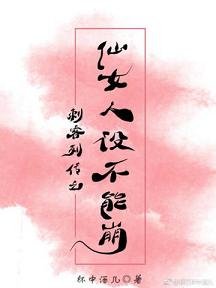 仙女人设不能崩
刺客列传之
杯中酒儿◎著